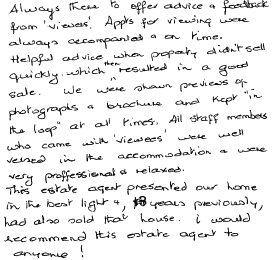 Always there to offer advice & feedback
from 'viewers'. Appts for viewing were
always accompanied & on time.
Helpful advice when property didn't sell
quickly which then resulted in a good
sale. We were shown previews of
photographs & brochure and kept "in
the loop" at all times. All staff members
who came with 'viewees' were well
versed in the accommodation & were
very proffessional & relaxed.
This estate agent presented our home
in the best light &, 8 years previously,
had also sold that house. i would
recommend this estate agent to
anyone!